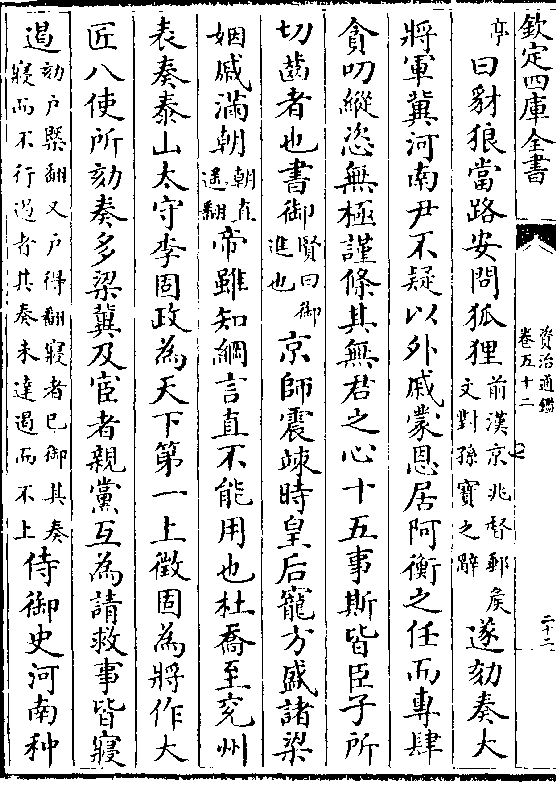 欽定四庫全書
資治通鑑
卷五十二
二十二
亭曰豺狼當路安問狐狸前漢京兆督郵矦文對孫寶之辭遂劾奏大
將軍冀河南尹不疑以外戚蒙恩居阿衡之任而專肆
貪叨縱恣無極謹條其無君之心十五事斯皆臣子所
切齒者也書御賢曰御進也京師震竦時皇后寵方盛諸梁
姻戚滿朝朝直遙翻帝雖知綱言直不能用也杜喬至兖州
表奏泰山太守李固政為天下第一上徵固為將作大
匠八使所劾奏多梁冀及宦者親黨互為請救事皆寢
遏劾户槩翻又户得翻寢者已御其奏寢而不行遏者其奏未達遏而不上侍御史河南种